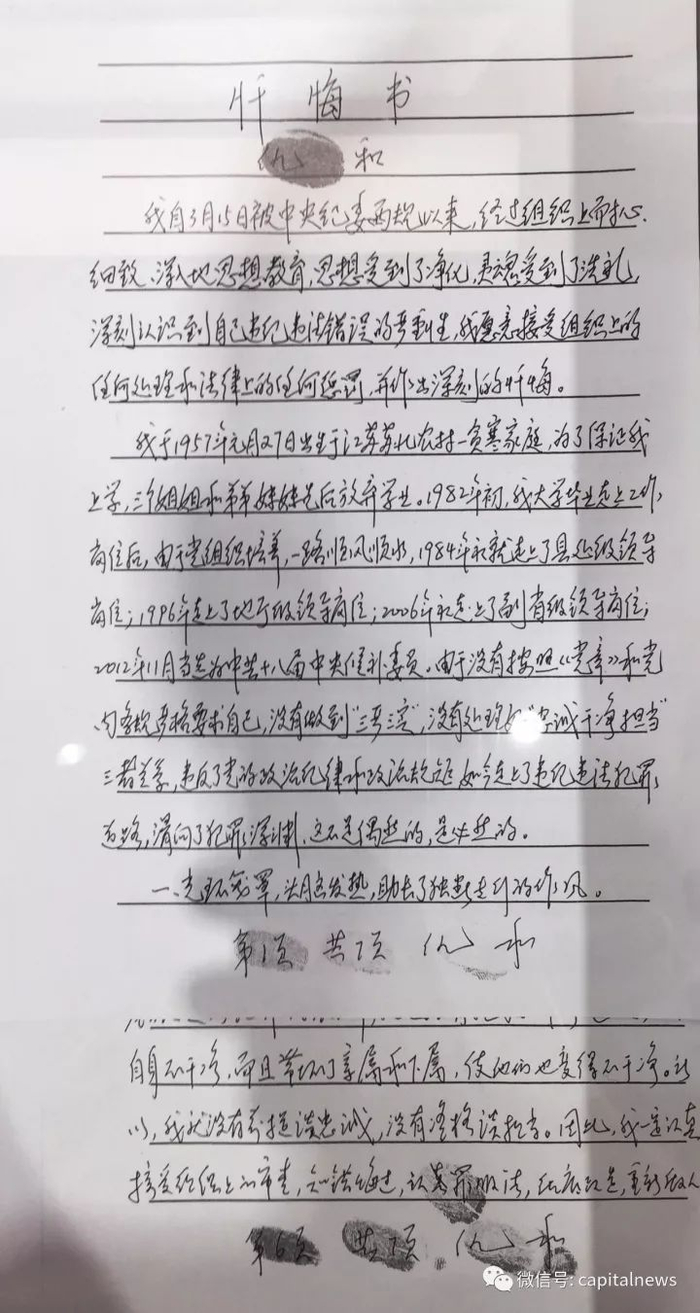 忏悔书
仇和
我自3月15日被中央纪委两规以来，经过组织上耐心、
细致、深入地思想教育，思想受到了净化，灵魂受到了洗礼，
深刻认识到自己违纪违法错误的严重性，我愿意接受组织上的
任何处理和法律上的任何惩罚，并作出深刻的忏悔。
我于1957年元月27日出生于江苏苏北农村一贫寒家庭，为了保证我
上学，三个姐姐和弟弟妹妹先后放弃学业。1982年初，我大学毕业走上工作
岗位后，由于党组织培养，一路顺风顺水，1984年我就走上了县处级领导
岗位；1996年走上了地厅级领导岗位；2006年初走上了副省级领导岗位；
2012年11月当选为中共十八届中央候补委员。由于没有按照《党章》和党
内条规严格要求自己，没有做到“三严三实”，没有处理好“忠诚干净担当”
三者关系，违反了党的政治纪律和政治规矩，如今走上了违纪违法犯罪
道路，滑向了犯罪深渊，这不是偶然的，是必然的。
一、光环笼罩，头脑发热，助长了独断专行的作风。
第1页 共7页 仇和
自身不干净，而且带坏了亲属和下属，使他们也变得不干净。所
以，我就没有前提谈忠诚，没有资格谈担当。因此，我一定认真
接受组织上的审查，知错悔过，认罪服法，彻底改造，重新做人
第6页 共7页 仇和
微信号: capitalnews